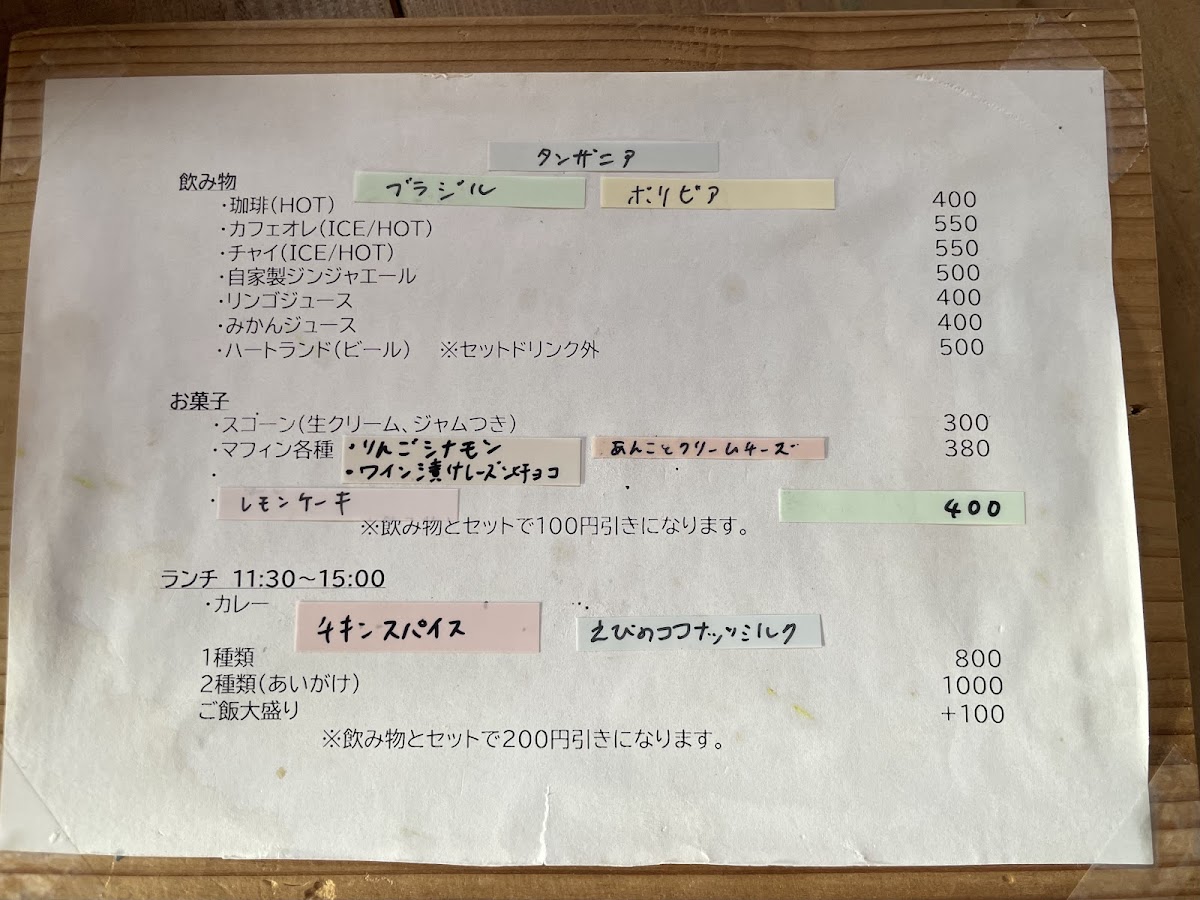 タンザニア
飲み物 ブラジル ボリビア
・珈琲(HOT) 400
・カフェオレ(ICE/HOT) 550
・チャイ(ICE/HOT) 550
・自家製ジンジャエール 500
・リンゴジュース 400
・みかんジュース 400
・ハートランド(ビール) ※セットドリンク外 500
お菓子
・スコーン(生クリーム、ジャムつき) 300
・マフィン各種 ・りんごシナモン あんことクリームチーズ 380
・ ・ワイン漬けレーズンとチョコ
・ レモンケーキ 400
※飲み物とセットで100円引きになります。
ランチ 11:30～15:00
・カレー
チキンスパイス えびのココナッツミルク
1種類 800
2種類(あいがけ) 1000
ご飯大盛り +100
※飲み物とセットで200円引きになります。